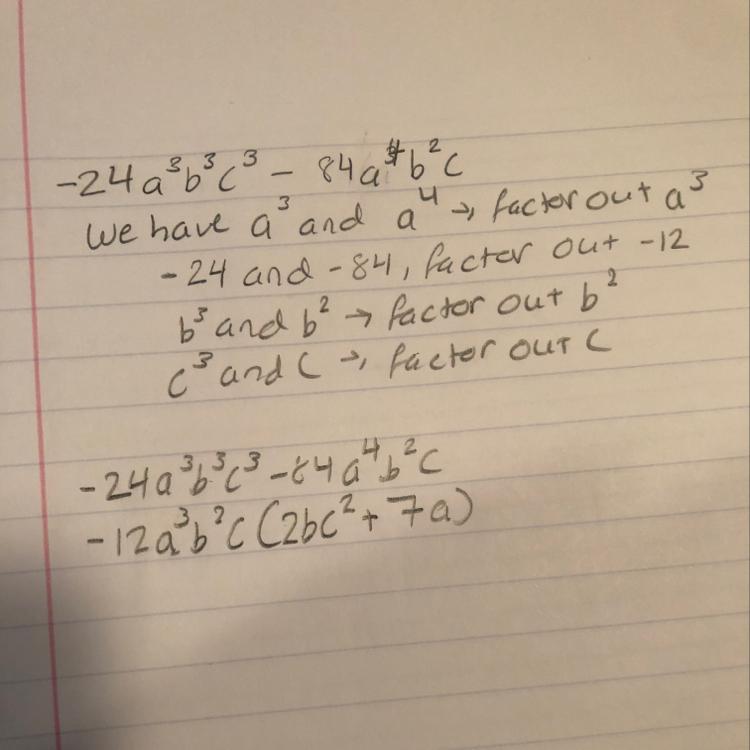 -24a³b³c³ - 84a⁴b²c
We have a³ and a⁴ → factor out a³
-24 and -84, factor out -12
b³ and b² → factor out b²
c³ and c → factor out c
-24a³b³c³ - 84a⁴b²c
-12a³b²c(2bc² + 7a)